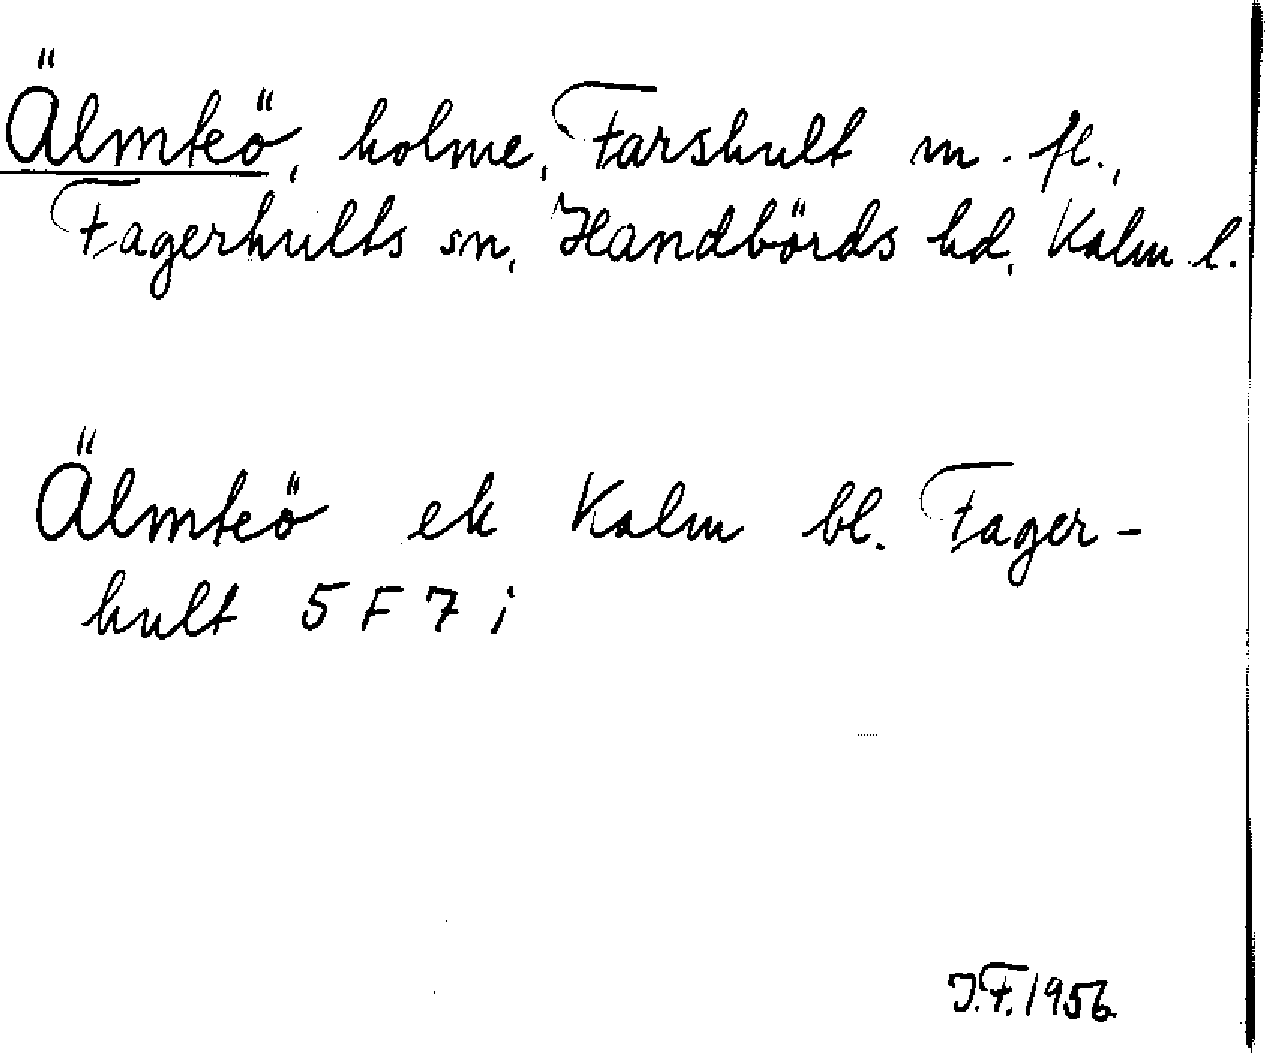 Älmteö, holme, Farshult m. fl.,
Fagerhults sn, Handbörds hd, Kalm l.
Älmteö ek Kalm bl. Fager-
hult 5 F 7 i
J.F. 1956